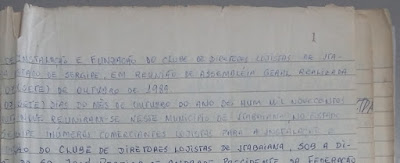 1
INSTALAÇÃO E FUNDAÇÃO DO CLUBE DE DIRETORES LOJISTAS DE ITA-
DE SERGIPE, EM REUNIÃO DE ASSEMBLEIA GERAL REALIZADA
(SETE) DE OUTUBRO DE 1981
DIAS DO MÊS DE OUTUBRO DO ANO DE HUM MIL NOVECENTOS
REUNIRAM-SE NESTE MUNICIPIO DE ITABAIANA, NO ESTADO
INÚMEROS COMERCIANTES LOJISTAS PARA A INSTALAÇÃO E
DO CLUBE DE DIRETORES LOJISTAS DE ITABAIANA, SOB A DI-
PRESIDENTE DA FEDERAÇÃO